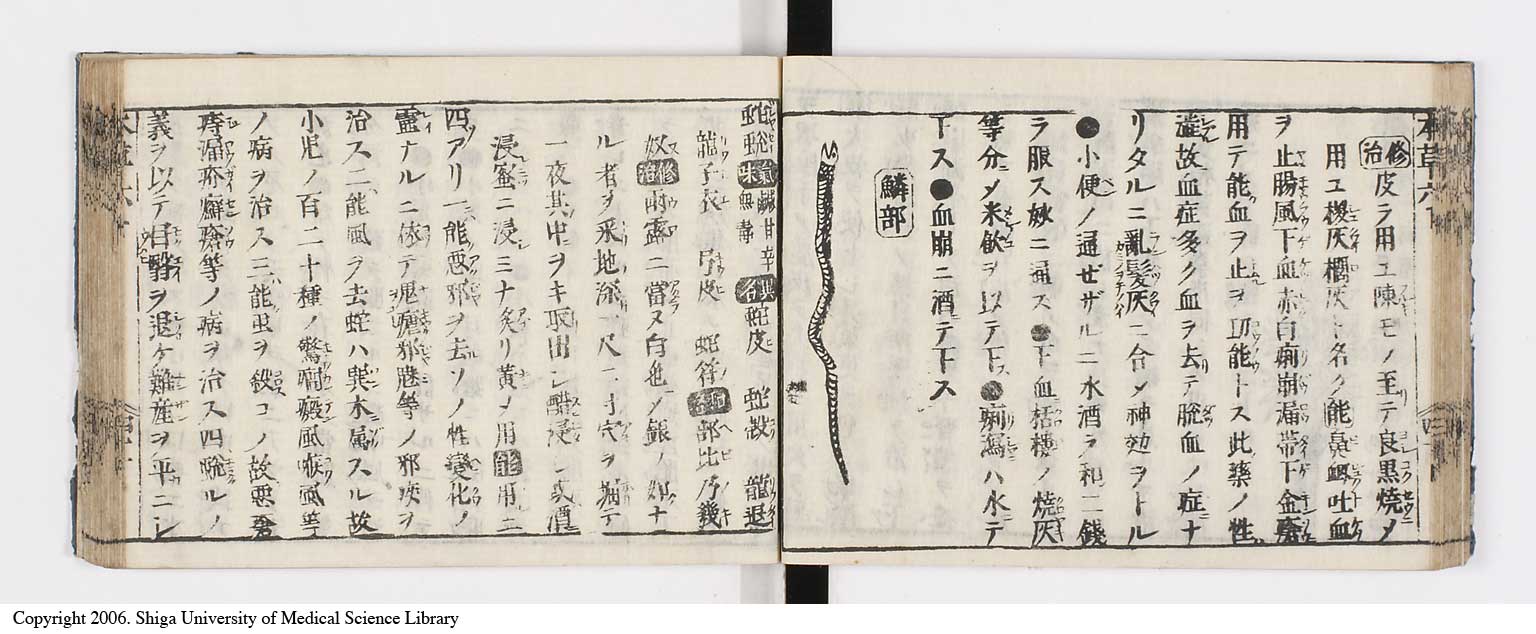 本草六
修治 皮ヲ用ユ陳モノ至テ良黒焼メ
用ユ椶灰椶灰ト名ク能鼻衂吐血
ヲ止腸風下血赤白痢崩漏帯下金瘡
用テ能血ヲ止ヲ功能トス此藥ノ性
澁故血症多ク血ヲ去テ脱血ノ症ナ
リタルニ亂髮灰ニ合メ神効ヲトル
●小便ノ通ゼザルニ水酒ヲ和二錢
ヲ服ス妙ニ通ス●下血栝樓ノ焼灰
等分メ米飲ヲ以テ下ス●痢瀉ハ水テ
下ス●血崩ニ酒テ下ス
鱗部
蛇蛻 氣味 鹹甘辛無毒 異名 蛇皮 蛇殻 龍退
龍子衣 弓皮 蛇符 和名 部比乃幾
奴 修治 雨露ニ當ヌ白色メ銀ノ如ナ
ル者ヲ采地深一尺二寸穴ヲ掘テ
一夜其中ヲキ取出シ醋浸シ或酒
浸蜜ニ浸ミナ炙リ黄メ用 能 用ニ
四アリ一能悪邪ヲ去ソノ性變化ノ
靈ナルニ依テ鬼瘧邪魅等ノ邪疾ヲ
治ス二能風ヲ去蛇ハ巽木属スル故
小児ノ百二十種ノ驚癇癜風喉風等
ノ病ヲ治ス三能虫ヲ殺コノ故悪瘡
痔漏疥癬瘡等ノ病ヲ治ス四蛻ルノ
義ヲ以テ目翳ヲ退ケ難産ヲ平ニシ
Copyright 2006. Shiga University of Medical Science Library